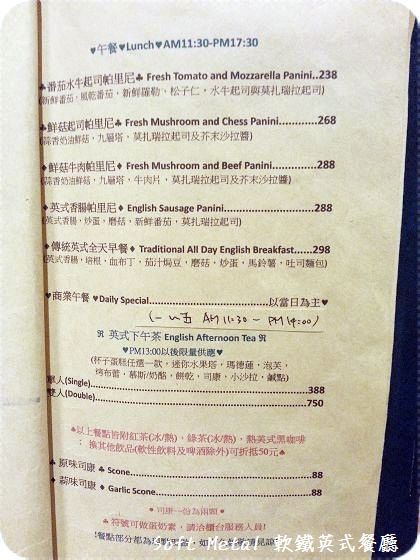 ♥午餐 ♥Lunch♥AM11:30-PM17:30
♣番茄水牛起司帕里尼♣ Fresh Tomato and Mozzarella Panini..238
(新鮮番茄，風乾番茄，新鮮羅勒，松子仁，水牛起司與莫扎瑞拉起司)
♣鮮菇起司帕里尼♣ Fresh Mushroom and Chess Panini............268
(蒜香奶油鮮菇，九層塔，莫扎瑞拉起司及芥末沙拉醬)
♦鮮菇牛肉帕里尼♦ Fresh Mushroom and Beef Panini.............288
(蒜香奶油鮮菇，九層塔，牛肉片，莫扎瑞拉起司及芥末沙拉醬)
♦英式香腸帕里尼♦ English Sausage Panini.........................288
(英式香腸，炒蛋，磨菇，新鮮番茄，莫扎瑞拉起司)
♦傳統英式全天早餐♦ Traditional All Day English Breakfast......298
(英式香腸，培根，血布丁，茄汁焗豆，磨菇，炒蛋，馬鈴薯，吐司麵包)
♥商業午餐 ♥Daily Special..............................以當日為主♥
(一~五 AM11:30 ~ PM14:00)
英式下午茶 English Afternoon Tea
♥PM13:00以後限量供應♥
(杯子蛋糕任選一款，迷你水果塔，瑪德蓮，泡芙，
烤布蕾，慕斯/奶酪，餅乾，司康，小沙拉，鹹點)
單人(Single)...............................................388
雙人(Double)..............................................750
♣以上餐點皆附紅茶(冰/熱)，綠茶(冰/熱)，熱美式黑咖啡
；換其他飲品(軟性飲料及啤酒除外)可折抵50元♣
♣ 原味司康 ♣ Scone..........................................88
♦ 蒜味司康 ♦ Garlic Scone..................................88
♦ 司康一份為兩顆 ♦
♣ 符號可做蛋奶素，請洽櫃台服務人員!
!餐點部分都為
Soft Metal 軟鐵英式餐廳